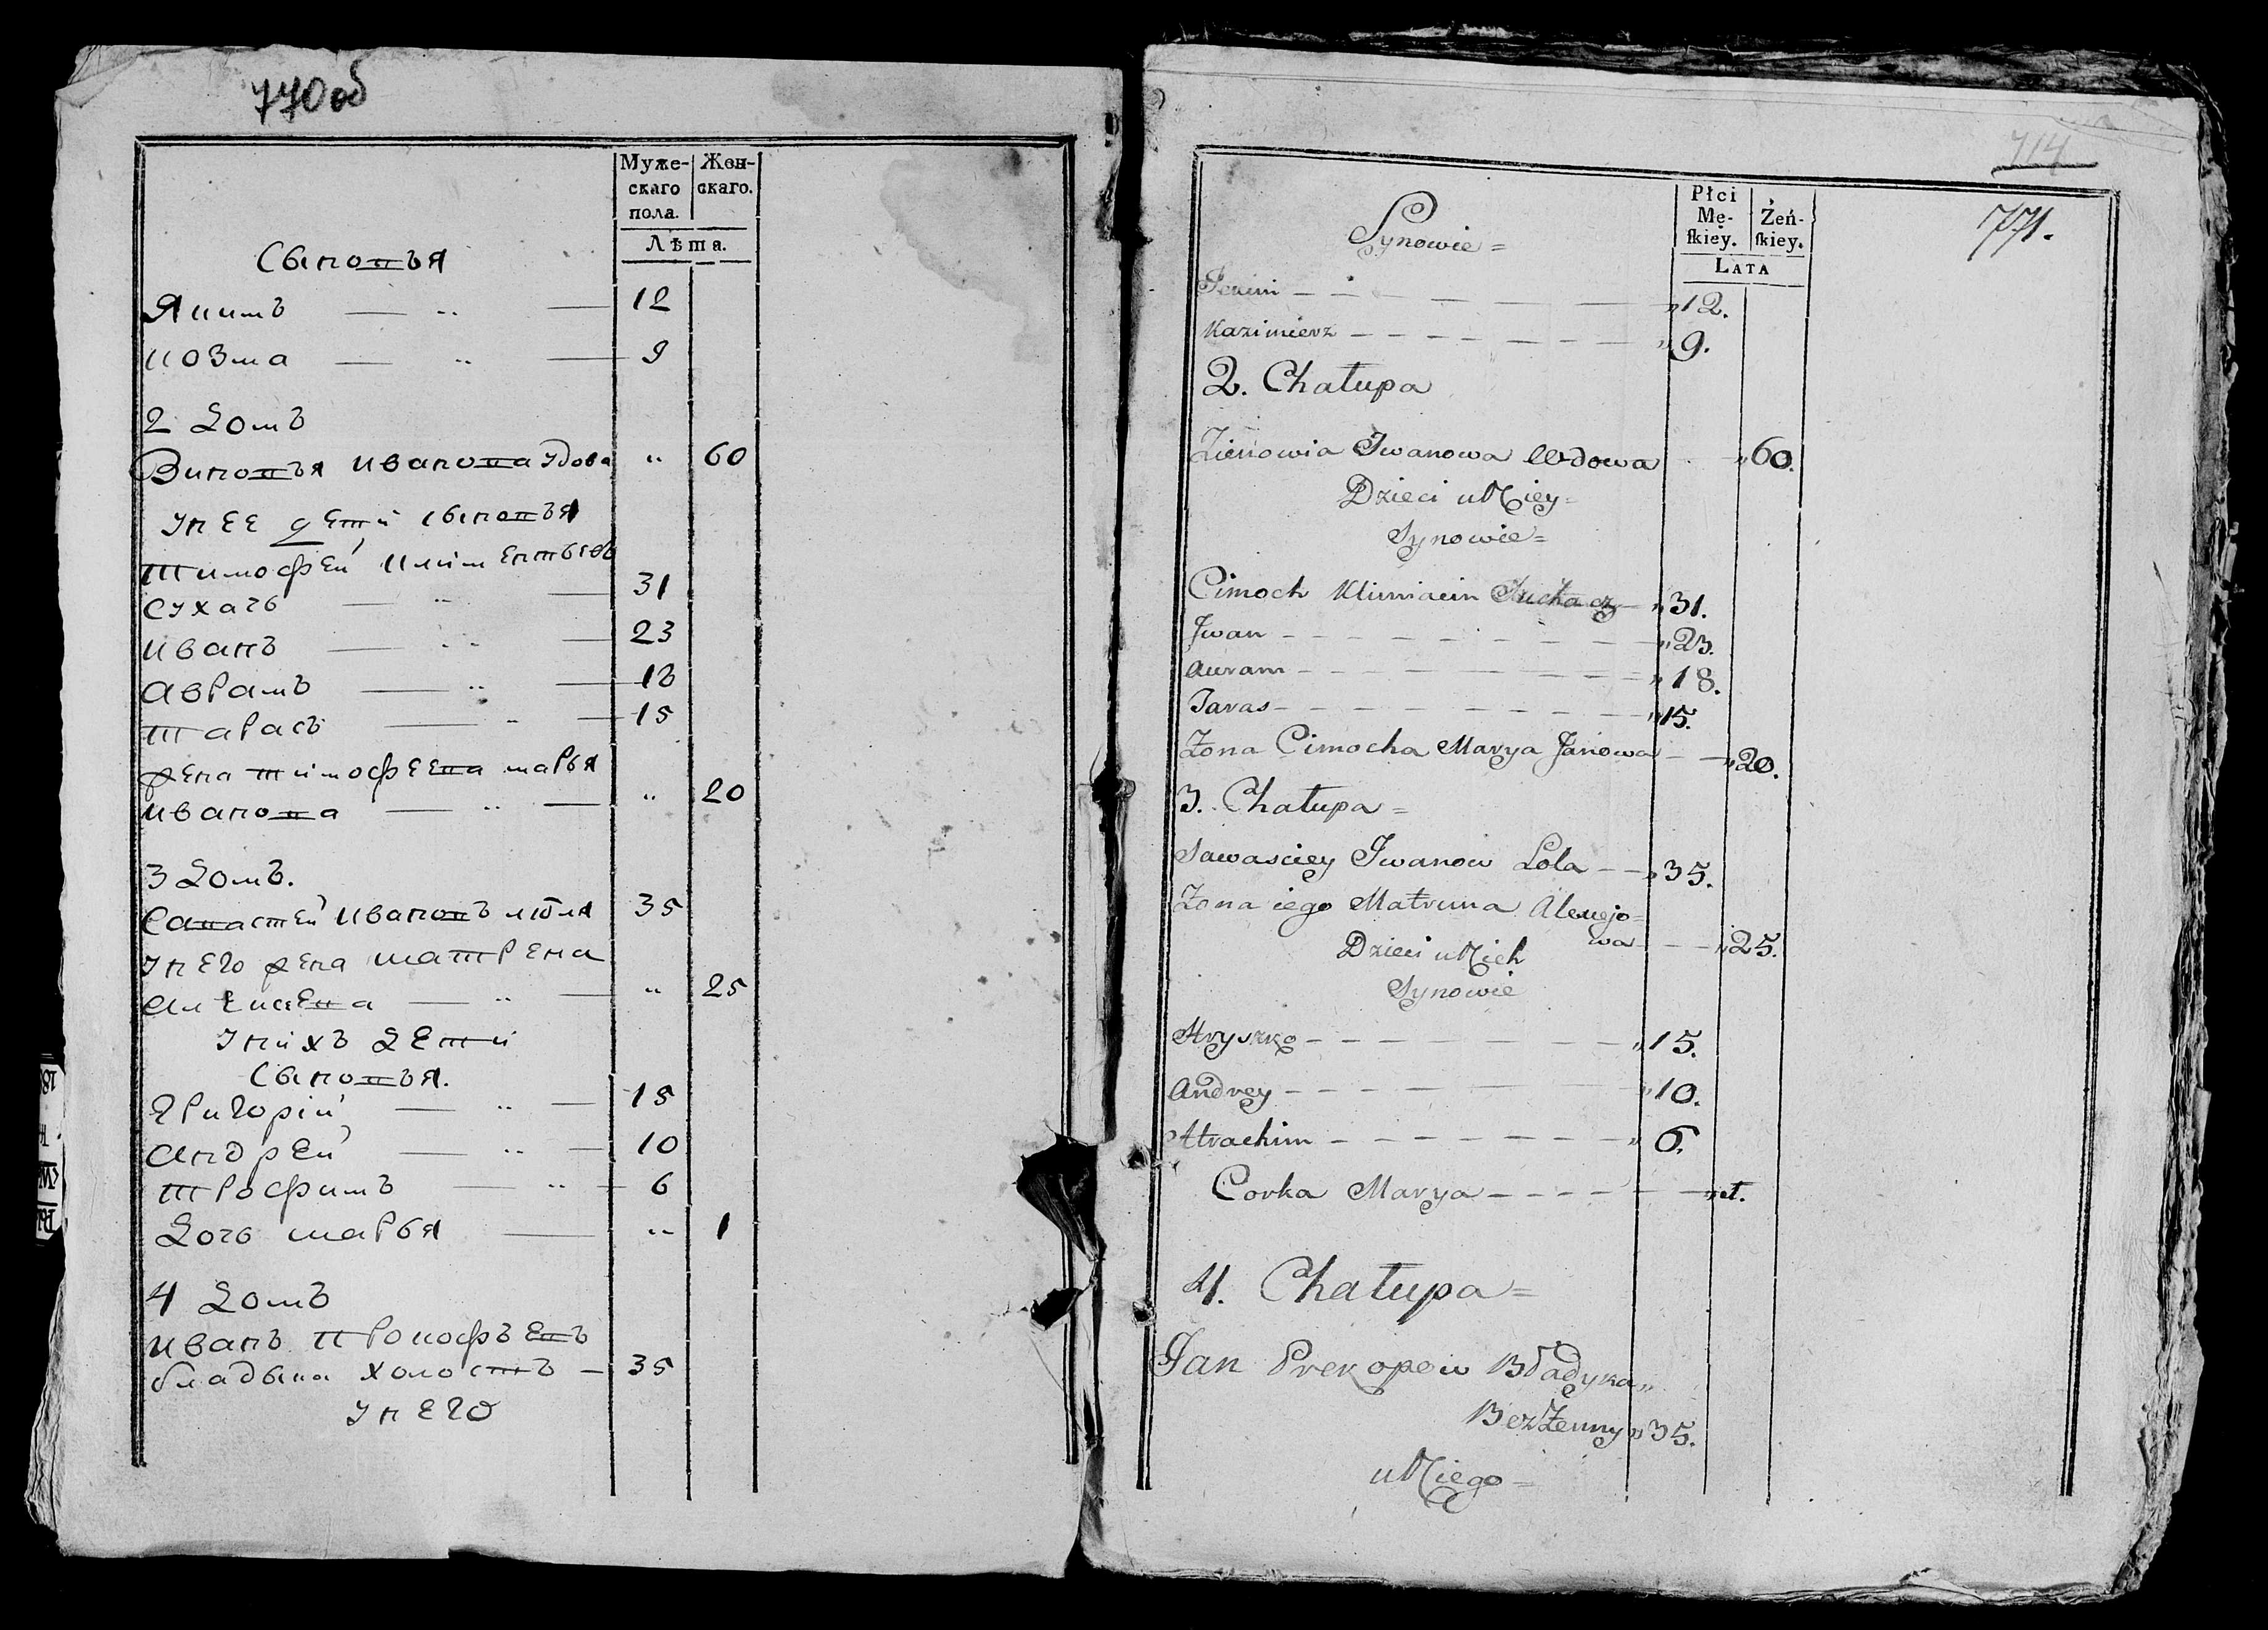 770об
Муже- Жен-
скаго скаго.
пола.
Лѣта.
Сыновья
Якимъ — " — 12
козма — " — 9
2 домъ
Зиновья иванова вдова " 60
у нее дети сыновья
тимофей климентьевъ
сухачь — " — 31
иванъ — " — 23
аврамъ — " — 18
тарасъ — " — 15
жена тимофеева марья
иванова — " — " 20
3 домъ.
Савастей ивановъ люля 35
у него жена матрена
алексеева — " — " 25
у нихъ дети
Сыновья.
григорій — " — 15
андрей — " — 10
трофимъ — " — 6
дочь марья — " 1
4 домъ
иванъ прокофьевъ
владыка холостъ — 35
у него
714
771.
Płci
Mę- Żeń-
ſkiey. ſkiey.
LATA
Synowie =
Jekim — — — — — — „12.
Kazimierz — — — — — — „9.
2. Chałupa
Zienowia Iwanowa Wdowa — „60.
Dzieci u Niey =
Synowie =
Cimoch Klimiacin Suchacz — „31.
Jwan — — — — — — „23.
Auram — — — — — — „18.
Taras — — — — — — „15.
Żona Cimocha Marya Janowa — — „20.
3. Chałupa =
Sawasciey Iwanow Lola — — „35.
Żona iego Matruna Alexiejo=
wa — — „25.
Dzieci u Nich
Synowie
Hryszko — — — — — — „15.
Andrey — — — — — — „10.
Atrachim — — — — — — „6.
Corka Marya — — — — — „1.
4. Chałupa =
Jan Prokopow Władyka„
BezŻenny „35.
u Niego =